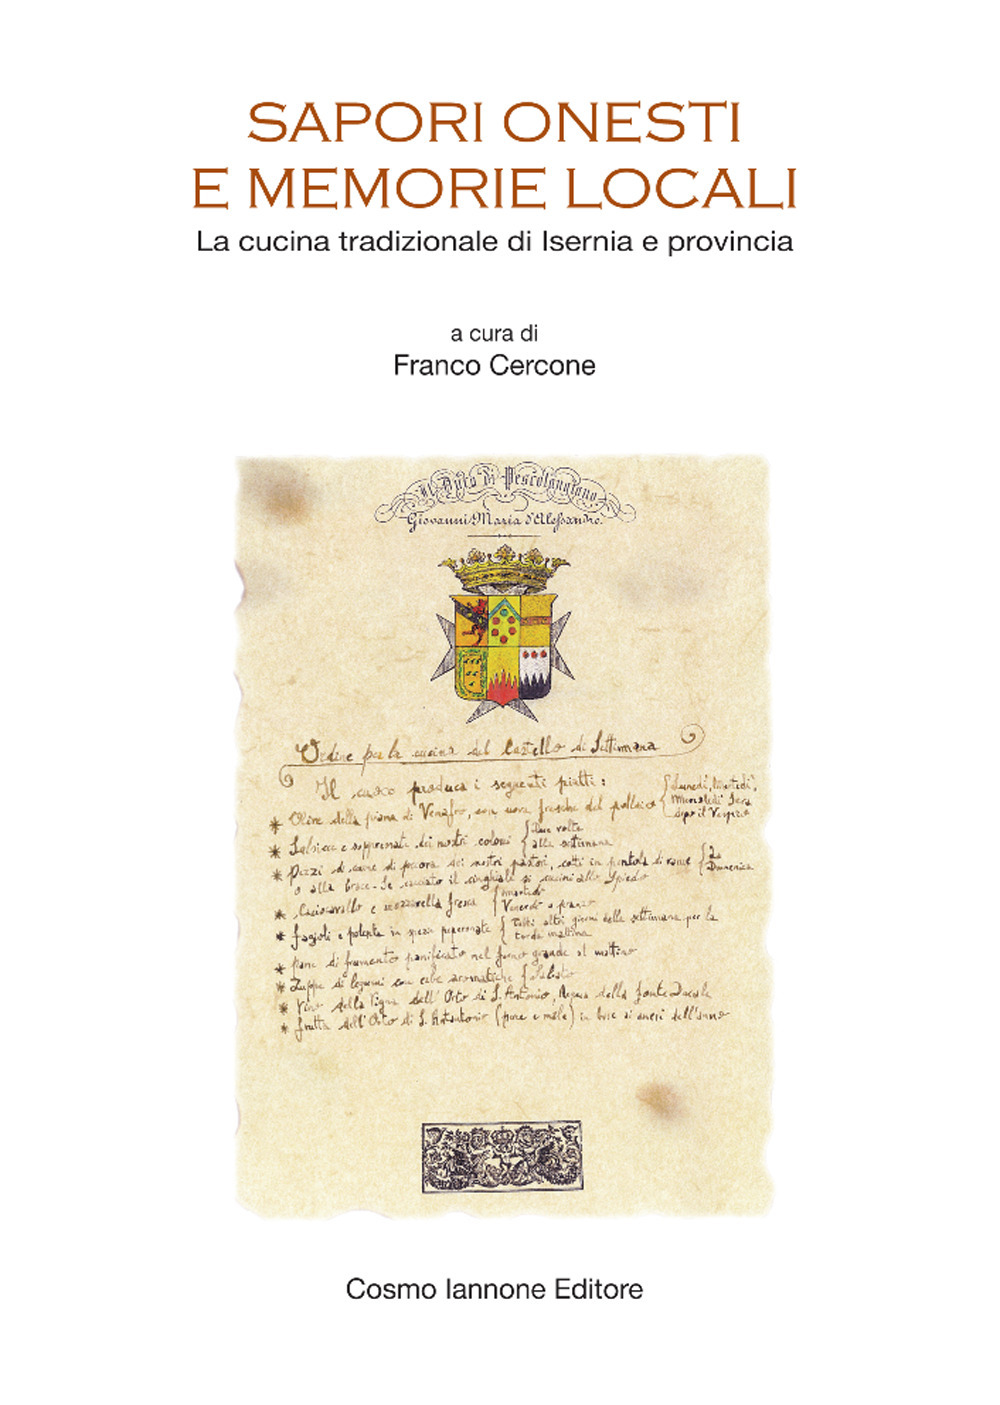 SAPORI ONESTI
E MEMORIE LOCALI
La cucina tradizionale di Isernia e provincia
a cura di
Franco Cercone
Il Duca di Pescolangiano
Giovanni Maria d'Alessandro
Ordine per la cucina del Castello di Settimana
Il cuoco produca i seguenti piatti:
* Olive della piana di Venafro, con uova fresche del pollaio { Lunedì, Martedì, Mercoledì sera dopo il Vespro
* Salsicce e soppressate dei nostri coloni { Due volte alla settimana
* Pezzi di carne di pecora dei nostri pastori, cotti in pentola di rame { La Domenica
o alla brace. Se cacciato il cinghiale si cucini allo spiedo
* Caciocavallo e mozzarella fresca { Martedì Venerdì a pranzo
* fagioli e polenta in spezie peperonate { Tutti altri giorni della settimana per la tarda mattina
* pane di frumento panificato nel forno grande al mattino
* Zuppe di legumi con erbe aromatiche { Sabato
* Vino della Vigna dell'Orto di S. Antonio, Acqua della fonte Ducale
* frutta dell'Orto di S. Antantonio (pere e mele) in base ai mesi dell'anno
Cosmo Iannone Editore